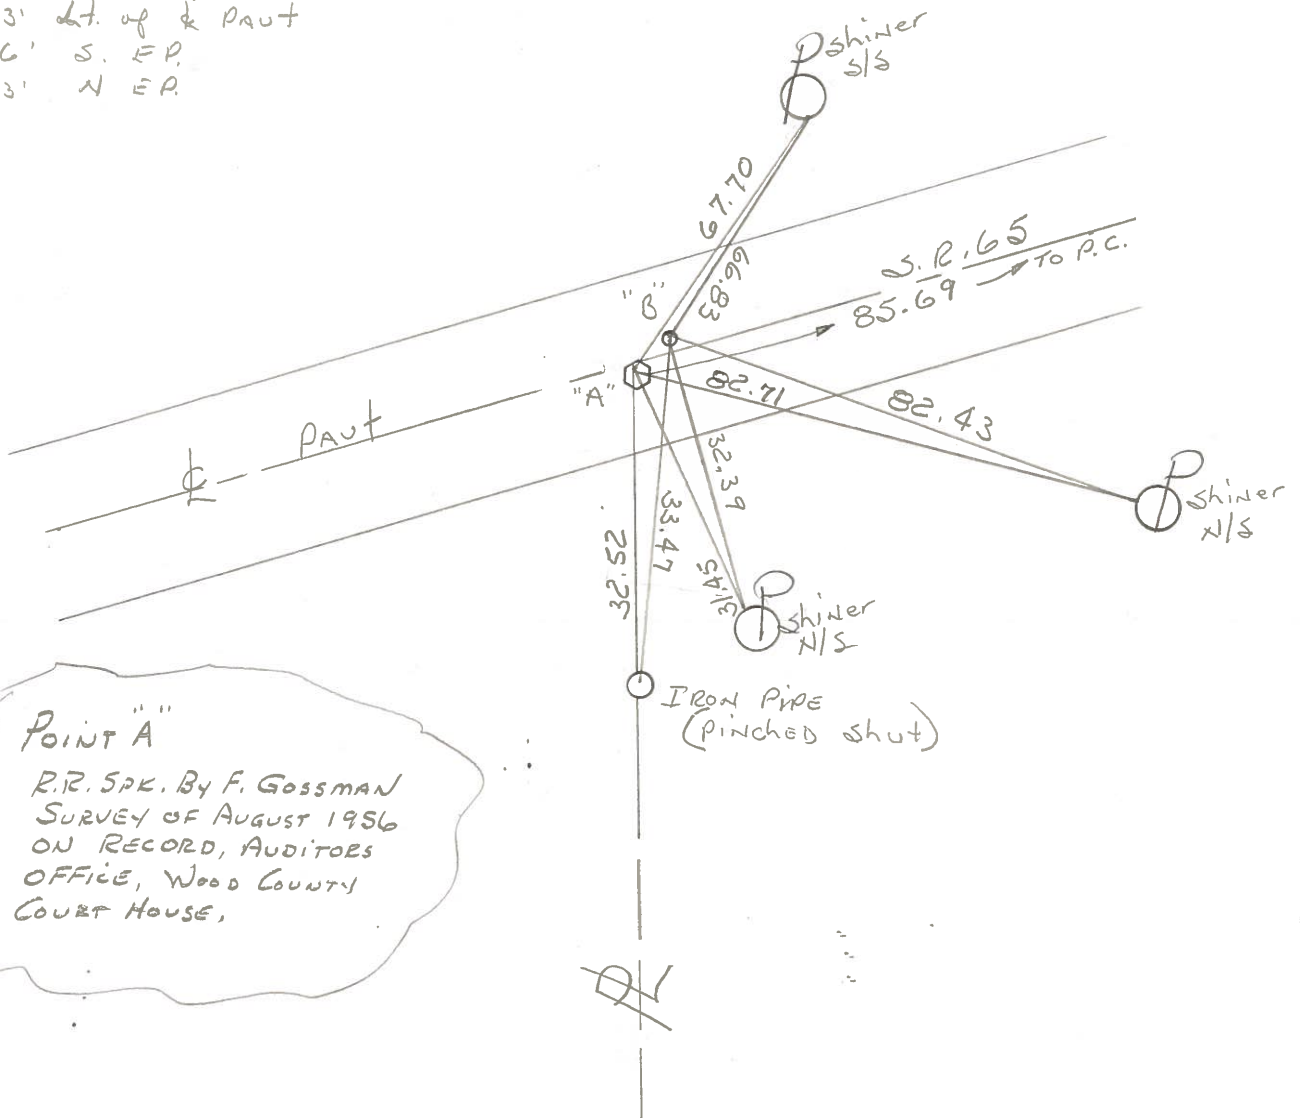 3' Lt. of ℄ PAVT
6' S. EP.
3' N EP.
P Shiner
S/S
67.70
66.83
"B"
S.R. 65
85.69 TO P.C.
"A"
82.71
82.43
℄ PAVT
32.39
33.47
32.52
31.45
P
Shiner
N/S
P
Shiner
N/S
IRON PIPE
(PINCHED Shut)
POINT "A"
R.R. SPK. By F. GOSSMAN
SURVEY OF AUGUST 1956
ON RECORD, AUDITORS
OFFICE, WOOD COUNTY
COURT HOUSE,